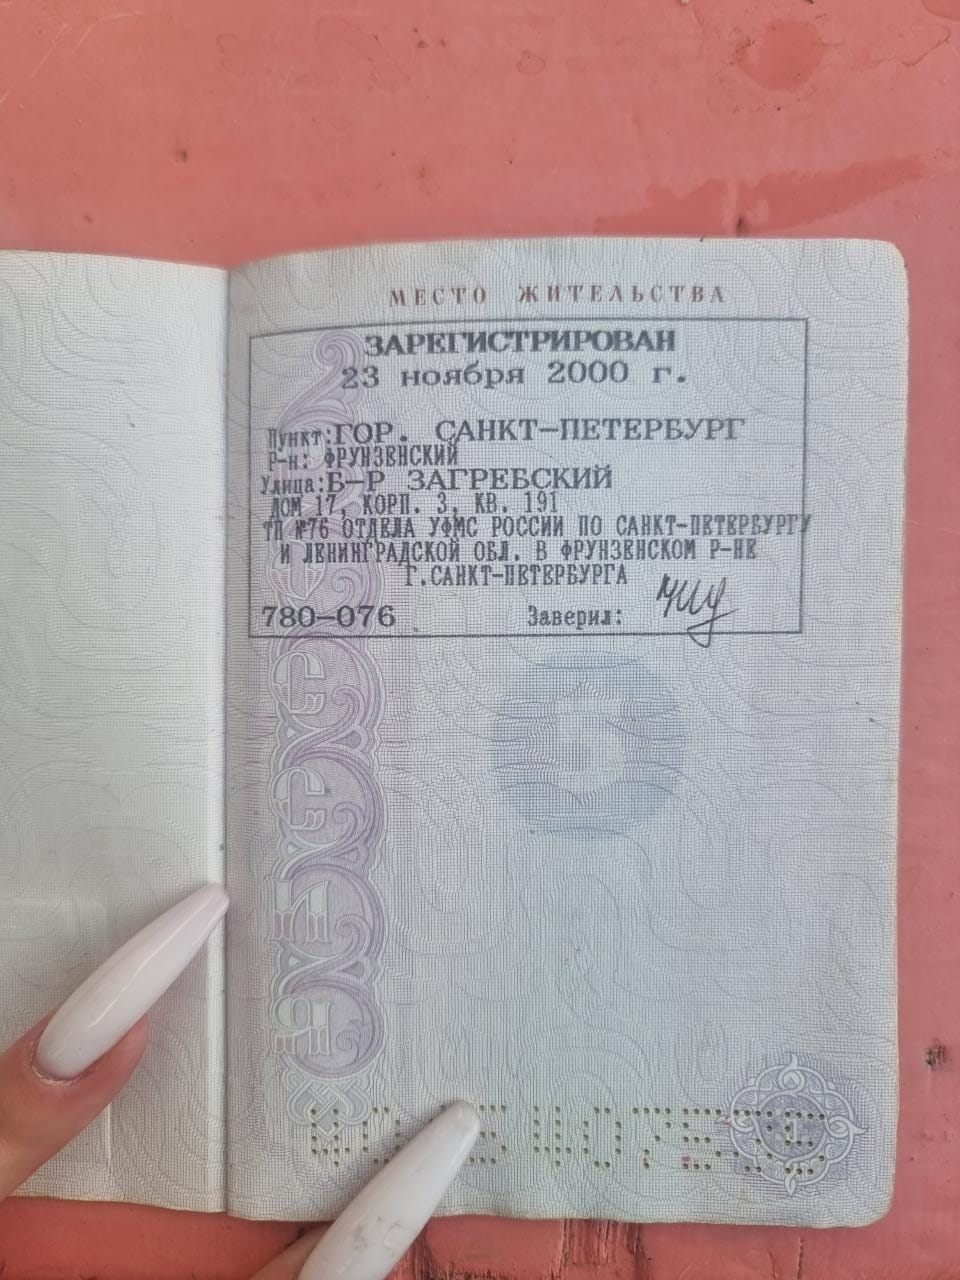 МЕСТО ЖИТЕЛЬСТВА
ЗАРЕГИСТРИРОВАН
23 ноября 2000 г.
Пункт:ГОР. САНКТ-ПЕТЕРБУРГ
Р-н: ФРУНЗЕНСКИЙ
Улица:Б-Р ЗАГРЕБСКИЙ
ДОМ 17, КОРП. 3, КВ. 191
ТП №76 ОТДЕЛА УФМС РОССИИ ПО САНКТ-ПЕТЕРБУРГУ
И ЛЕНИНГРАДСКОЙ ОБЛ. В ФРУНЗЕНСКОМ Р-НЕ
Г.САНКТ-ПЕТЕРБУРГА
780-076 Заверил: